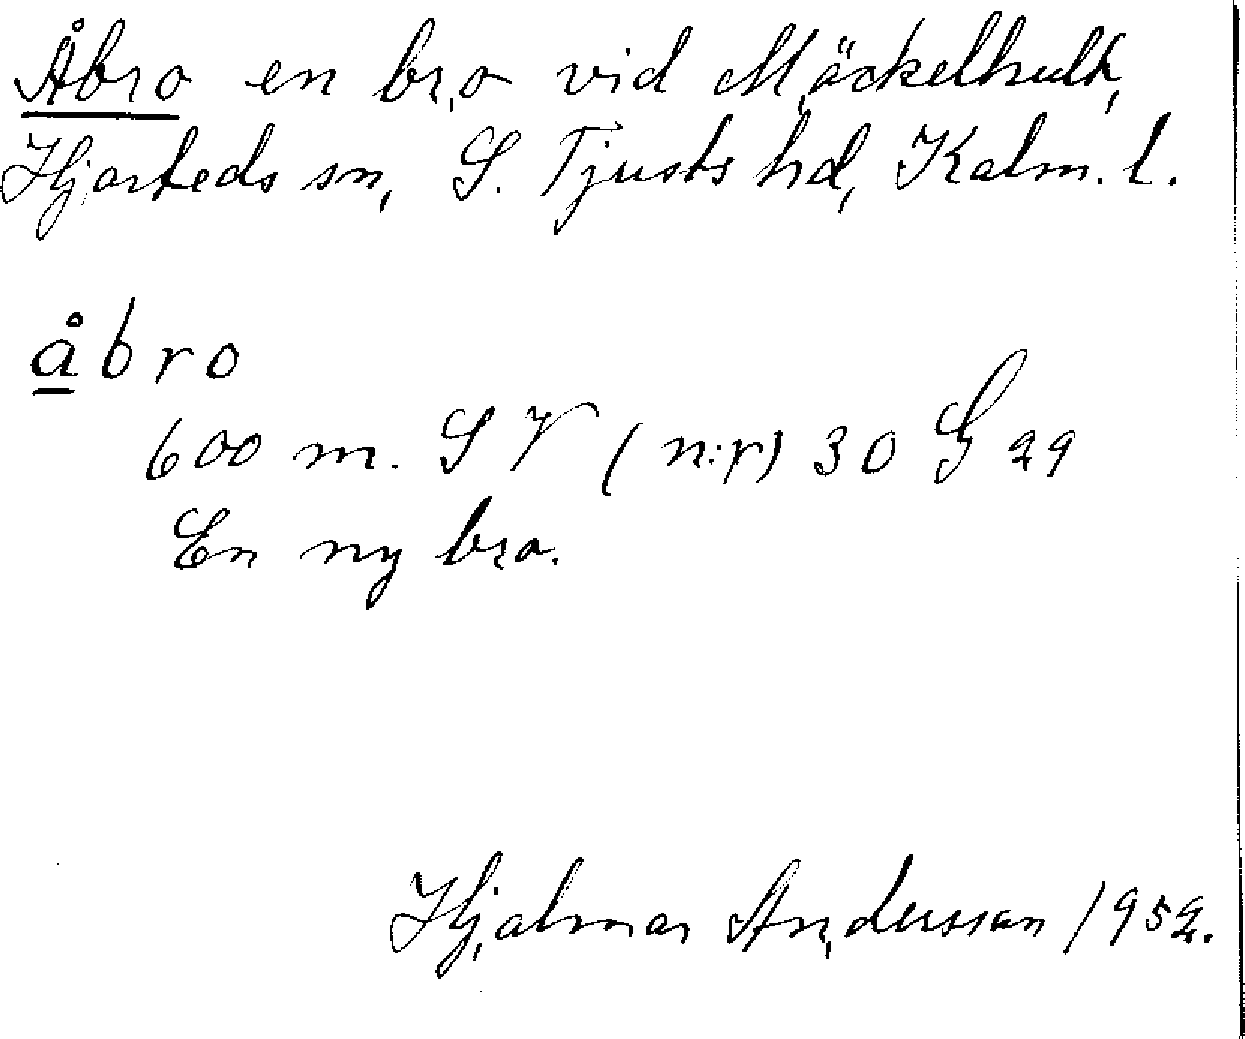 Åbro en bro vid Mäckelhult,
Hjorteds sn, S. Tjusts hd, Kalm. l.
åbro
600 m. SV (n:r) 30 G 29
En ny bro.
Hjalmar Andersson 1952.